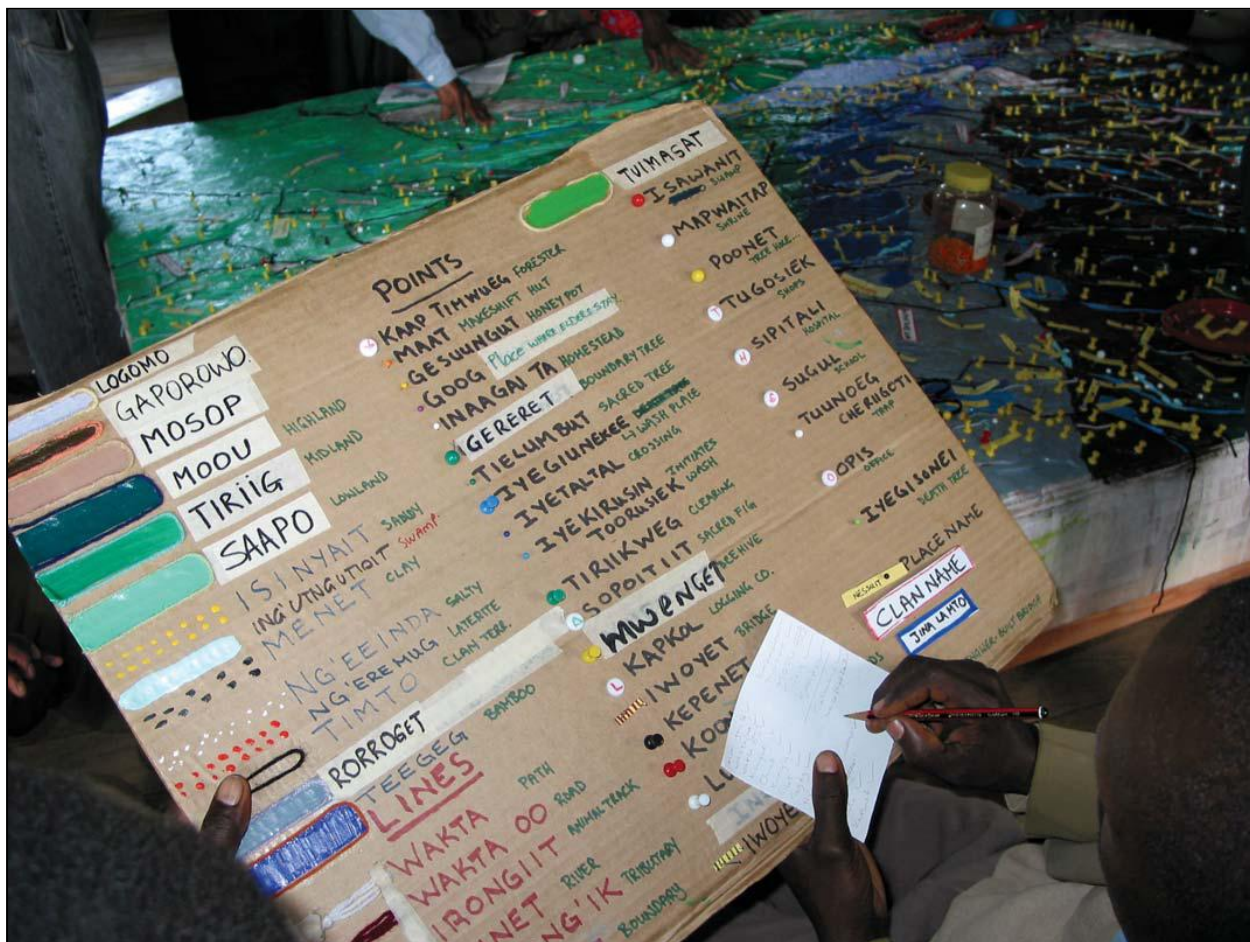 LOGOMO
GAPOROWO.
MOSOP HIGHLAND
MOOU MIDLAND
TIRIIG LOWLAND
SAAPO
ISINYAIT SANDY
INGUTNGUTIOIT SWAMP.
MENET CLAY
NG'EEINDA SALTY
NG'EREMUG LATERITE
TIMTO CLAN TERR.
RORROGET
TEEGEG BAMBOO
LINES
WAKTA PATH
WAKTA OO ROAD
IRONGIIT ANIMAL TRACK
NET RIVER
NG'IK TRIBUTARY
BOUNDARY
POINTS
KAAP TIMWUEG FORESTER
MAAT MAKESHIFT HUT
GESUUNGUT HONEY POT
GOOG Place WHERE ELDERS STAY.
INAAGAITA HOMESTEAD
GERERET BOUNDARY TREE
TIELUMBUT SACRED TREE
IYEGIUNEKEE WASH PLACE
IYETALTAL CROSSING
IYEKIRUSIN INITIATES
TOORUSIEK WASH
TIRIIKWEG CLEARING
SOPOITIIT SACRED FIG
MWENGET BEEHIVE
L KAPKOL LOGGING CO.
IWOYET BRIDGE
KEPENET
KOO
IWOYE
TUIMASAT
ISAWANIT
SWAMP
MAPWAITAP
SHRINE
POONET
TREE HOLE...
T TUGOSIEK
SHOPS
H SIPITALI
HOSPITAL
SUGUL
SCHOOL
TUUNOEG
CHERIIGOTI
TRAP
O OPIS
OFFICE
IYEGISONEI
DEATH TREE
NESSUIT PLACE NAME
CLAN NAME
JINA LA MTO
DS
BUILT BRIDGE